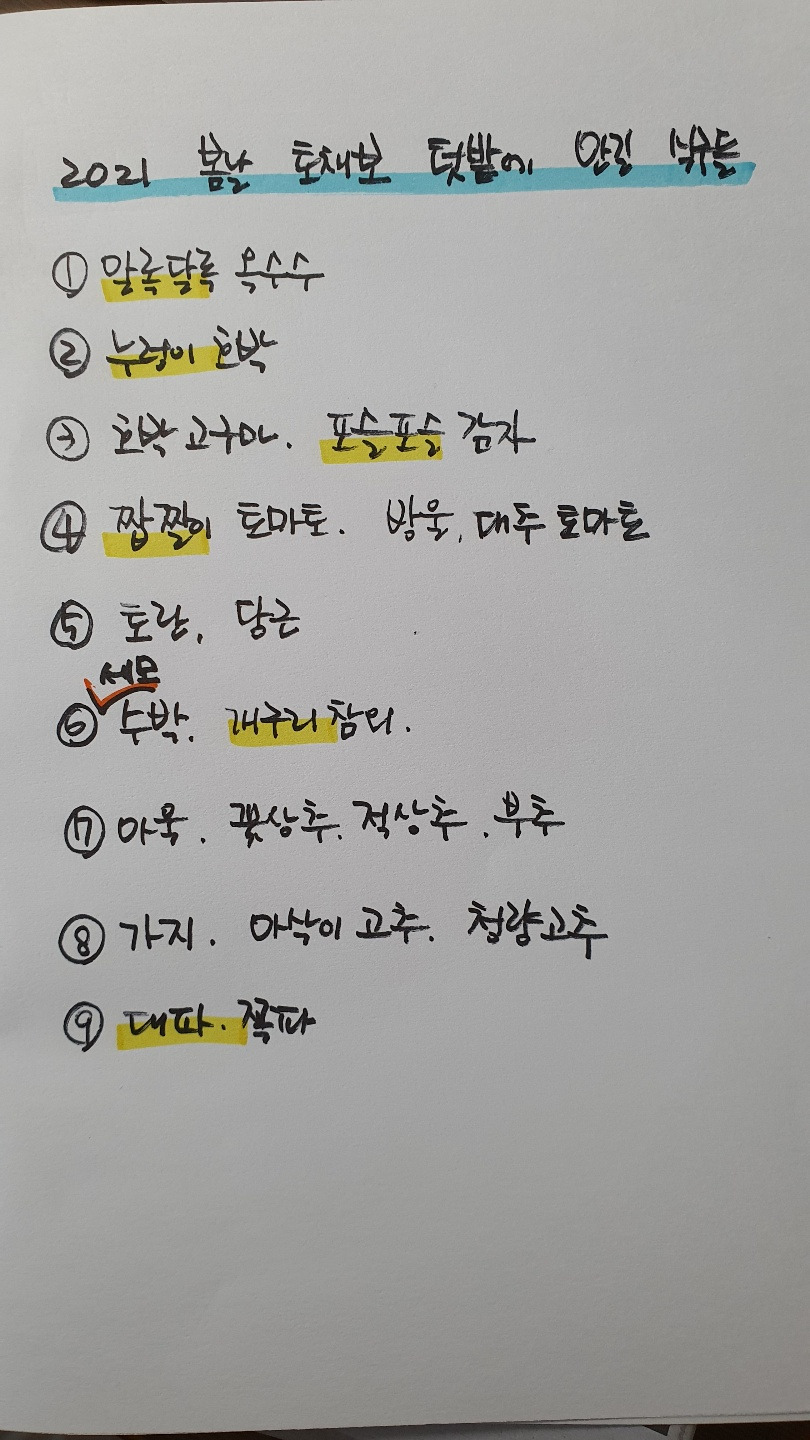 2021 봄날 토채보 텃밭에 안길 식구들
① 알록달록 옥수수
② 누렁이 호박
③ 호박 고구마. 포슬포슬 감자
④ 짭짤이 토마토. 방울, 대추 토마토
⑤ 토란, 당근
세모
⑥ 수박. 개구리 참외.
⑦ 아욱. 꽃상추. 적상추. 부추
⑧ 가지. 아삭이 고추. 청량고추
⑨ 대파. 쪽파